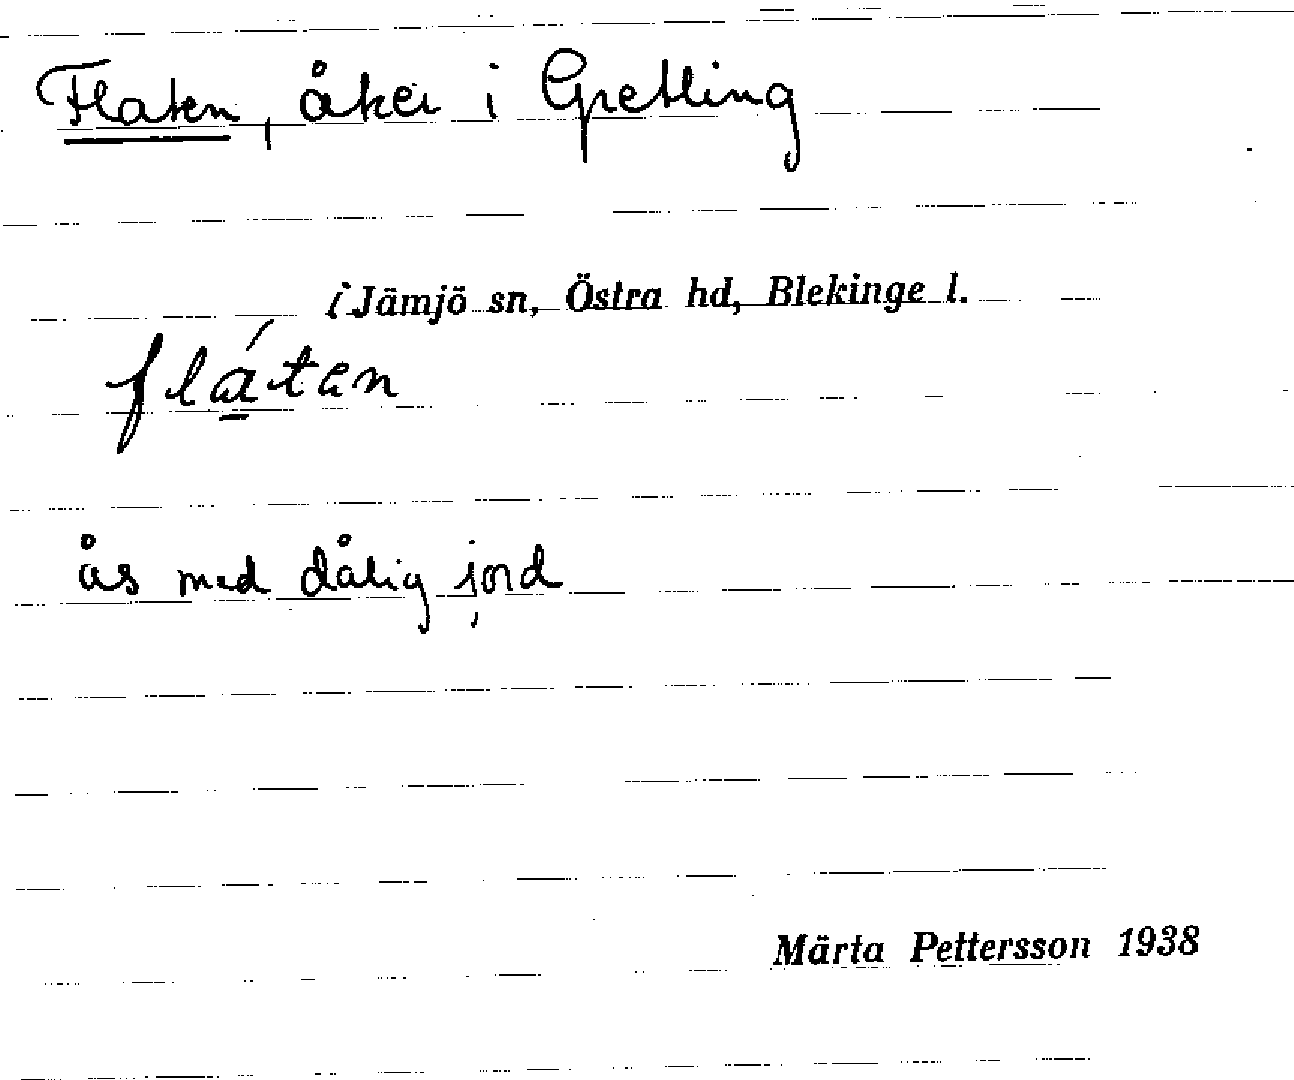 Flaten, åker i Gretling
i Jämjö sn, Östra hd, Blekinge l.
flátan
ås med dålig jord
Märta Pettersson 1938